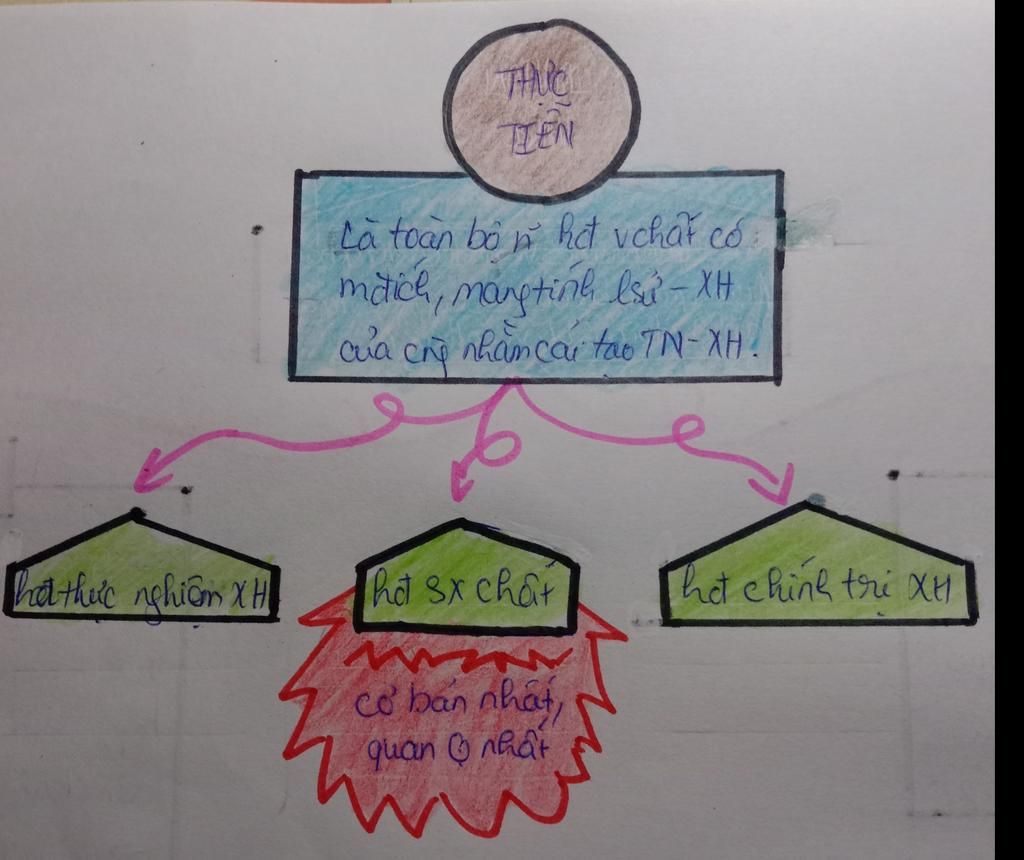 THỰC
TIỄN
Là toàn bộ n~ hđ vchất có
mđích, mang tính lsử - XH
của cng~ nhằm cải tạo TN - XH.
hđ thực nghiệm XH
hđ sx chất
hđ chính trị XH
cơ bản nhất,
quan Q nhất